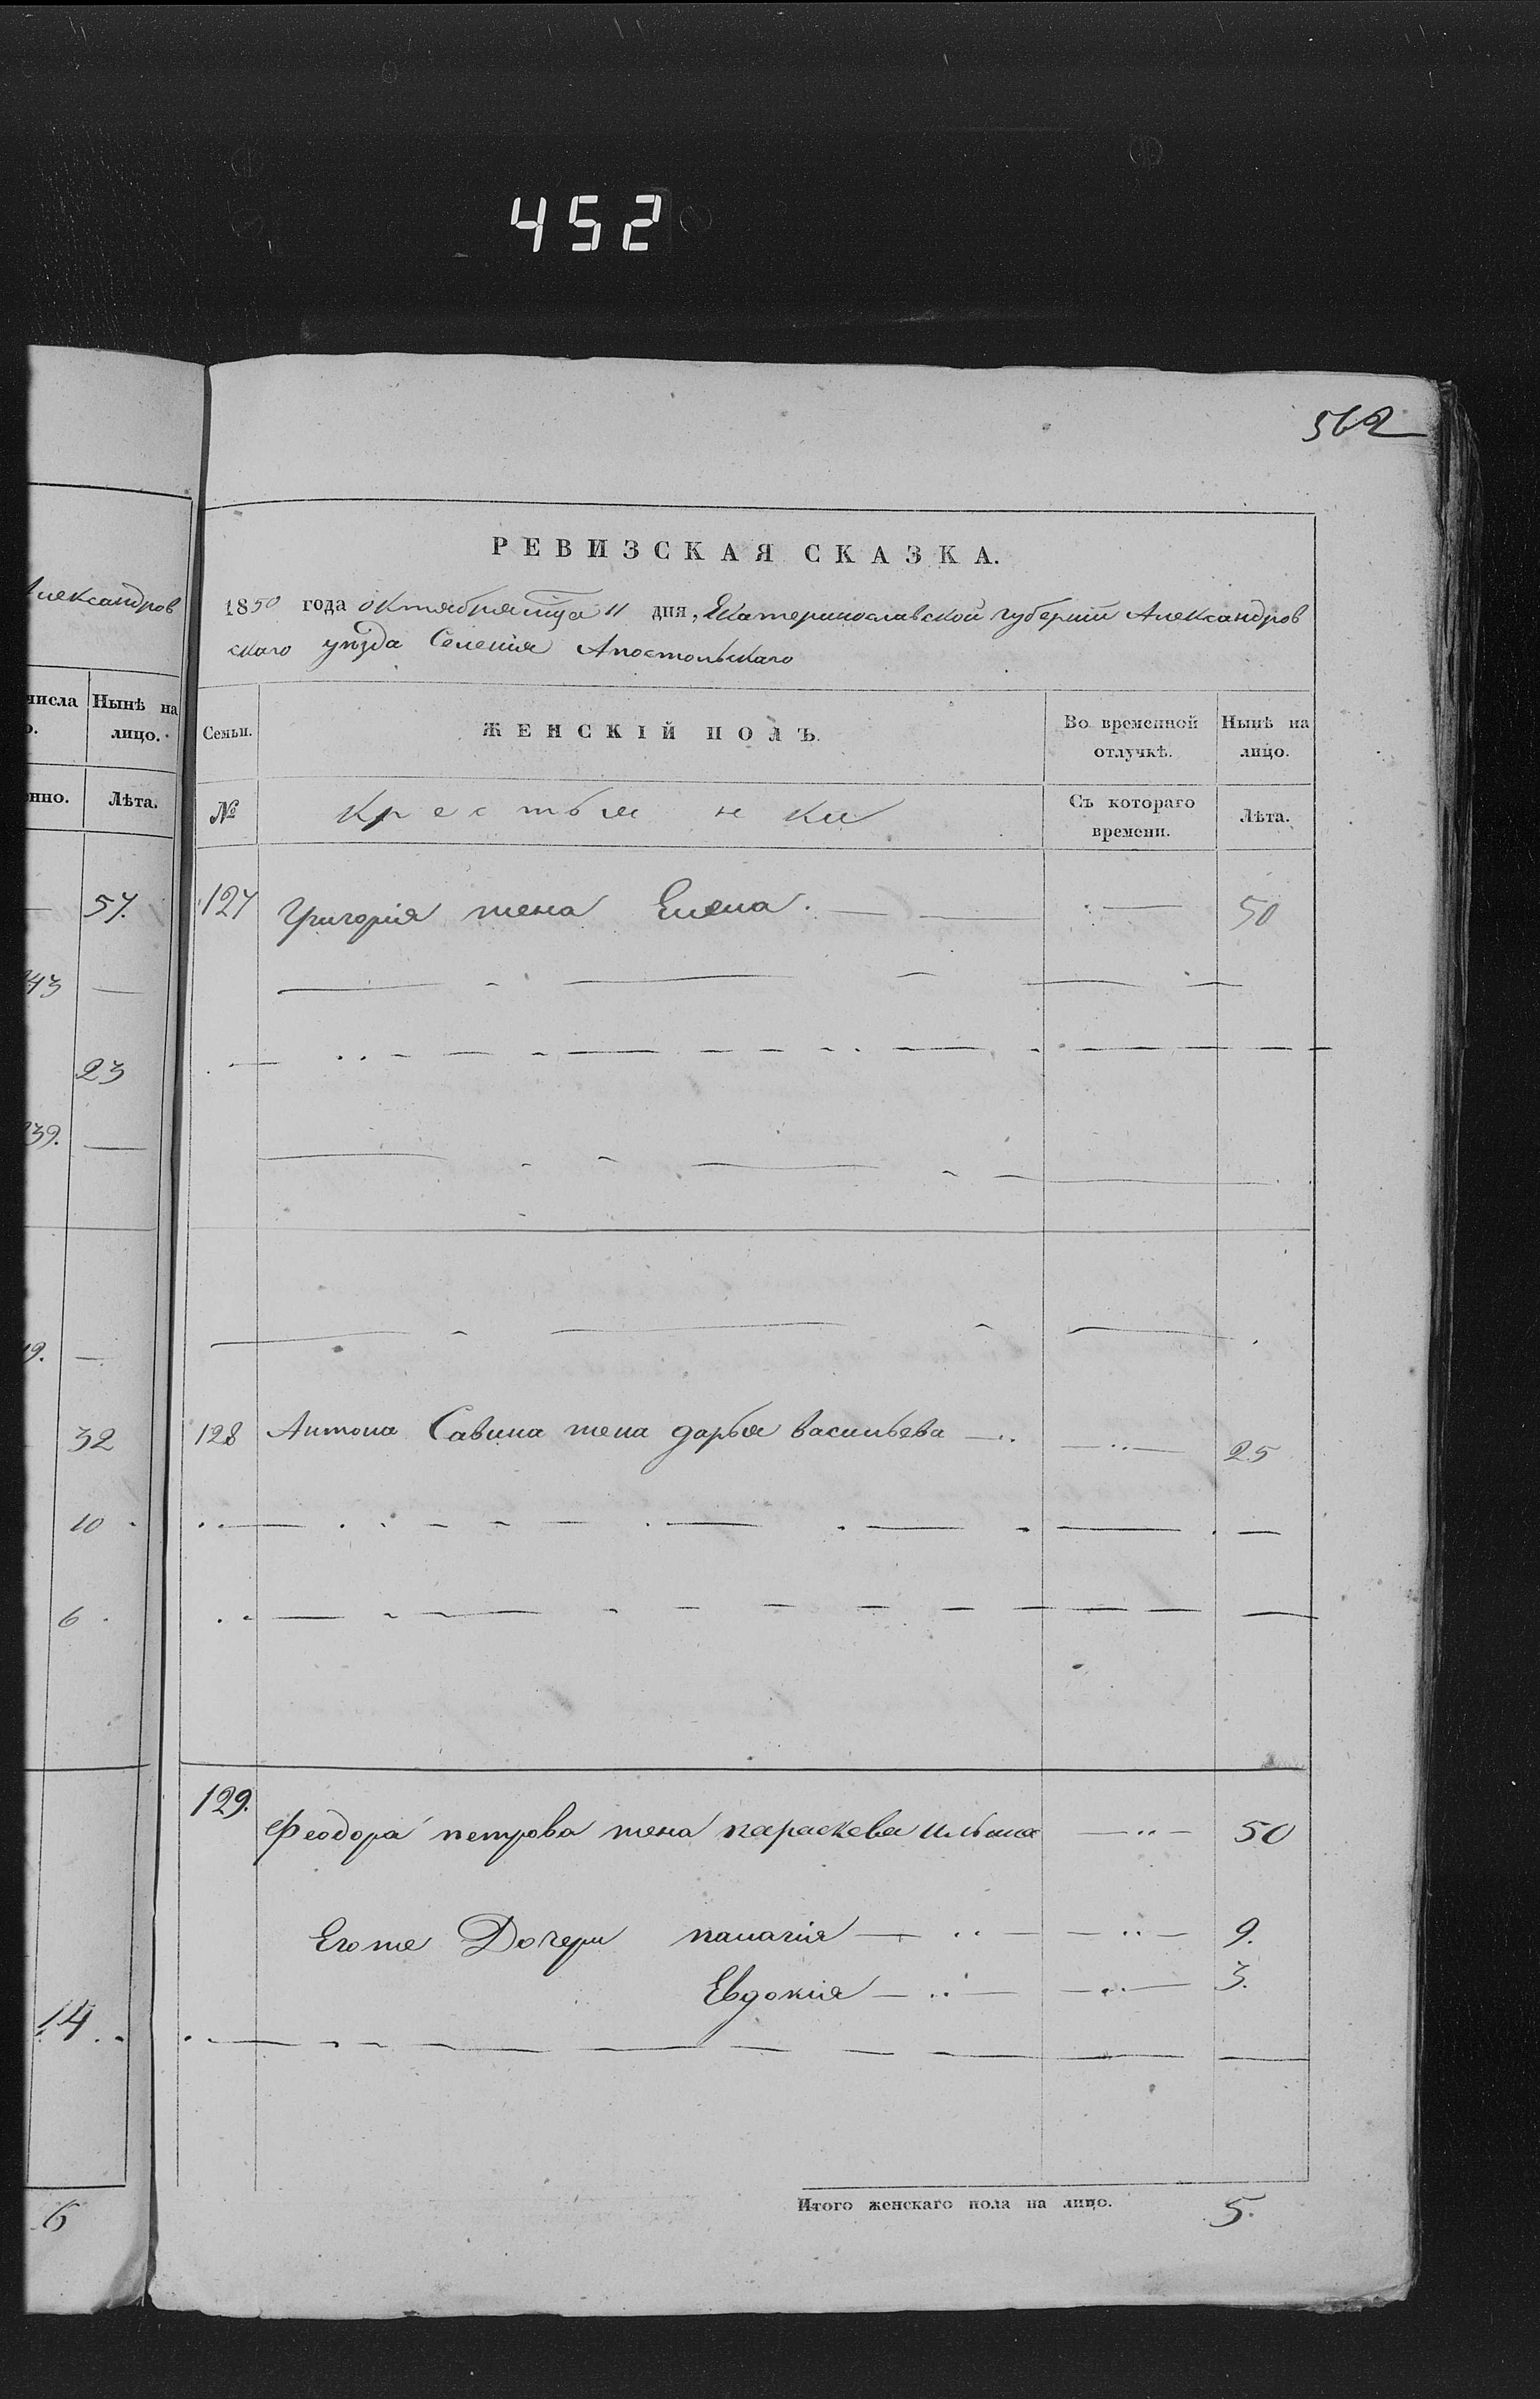 452
562
Александров
числа
Нынѣ на
лицо.
нно.
Лѣта.
57.
43
23
39.
9.
32
10
6
14
6
РЕВИЗСКАЯ СКАЗКА.
1850 года октября мца 11 дня, Екатеринославской губернии Александров
скаго уѣзда Селения Апостольскаго
Семьи.
ЖЕНСКІЙ ПОЛЪ.
Во временной
отлучкѣ.
Нынѣ на
лицо.
№
Крестьянки
Съ котораго
времени.
Лѣта.
127 Григорія жена Елена. 50
128 Антона Савина жена дарья васильева 25
129. Феодора петрова жена параскева ильина 50
Егоже Дочери палагія 9.
Евдокия 3.
Итого женскаго пола на лицо. 5.